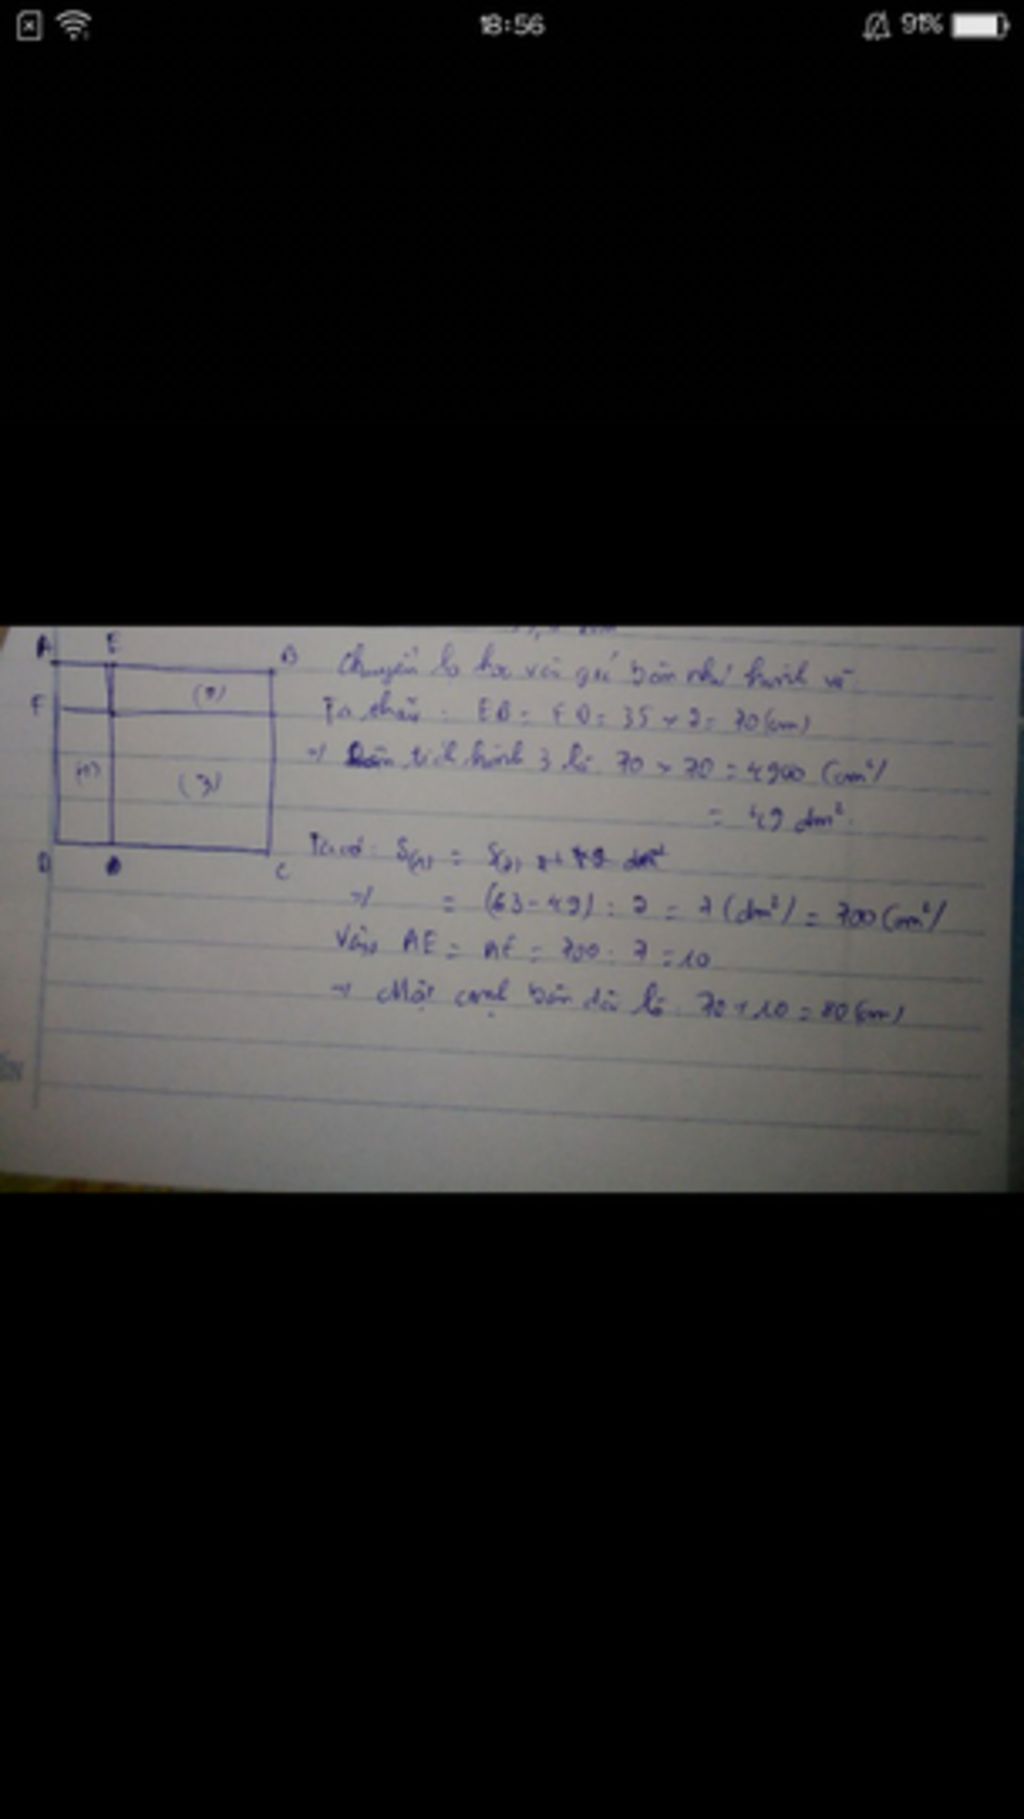 18:56
91%
A E B
Chuyển lọ hoa vào góc bàn như hình vẽ.
F (2)
Ta thấy: EB = FD = 35 x 2 = 70 (cm)
(1) (3)
tích hình 3 là 70 x 70 = 4900 (cm²)
= 49 dm².
D C
Ta có: S(1) = S(2)
= (63 - 49) : 2 = 7 (dm²) = 700 (cm²)
Vậy AE = AF = 700 : 7 = 10
→ Một cạnh bàn dài là: 70 + 10 = 80 (cm)